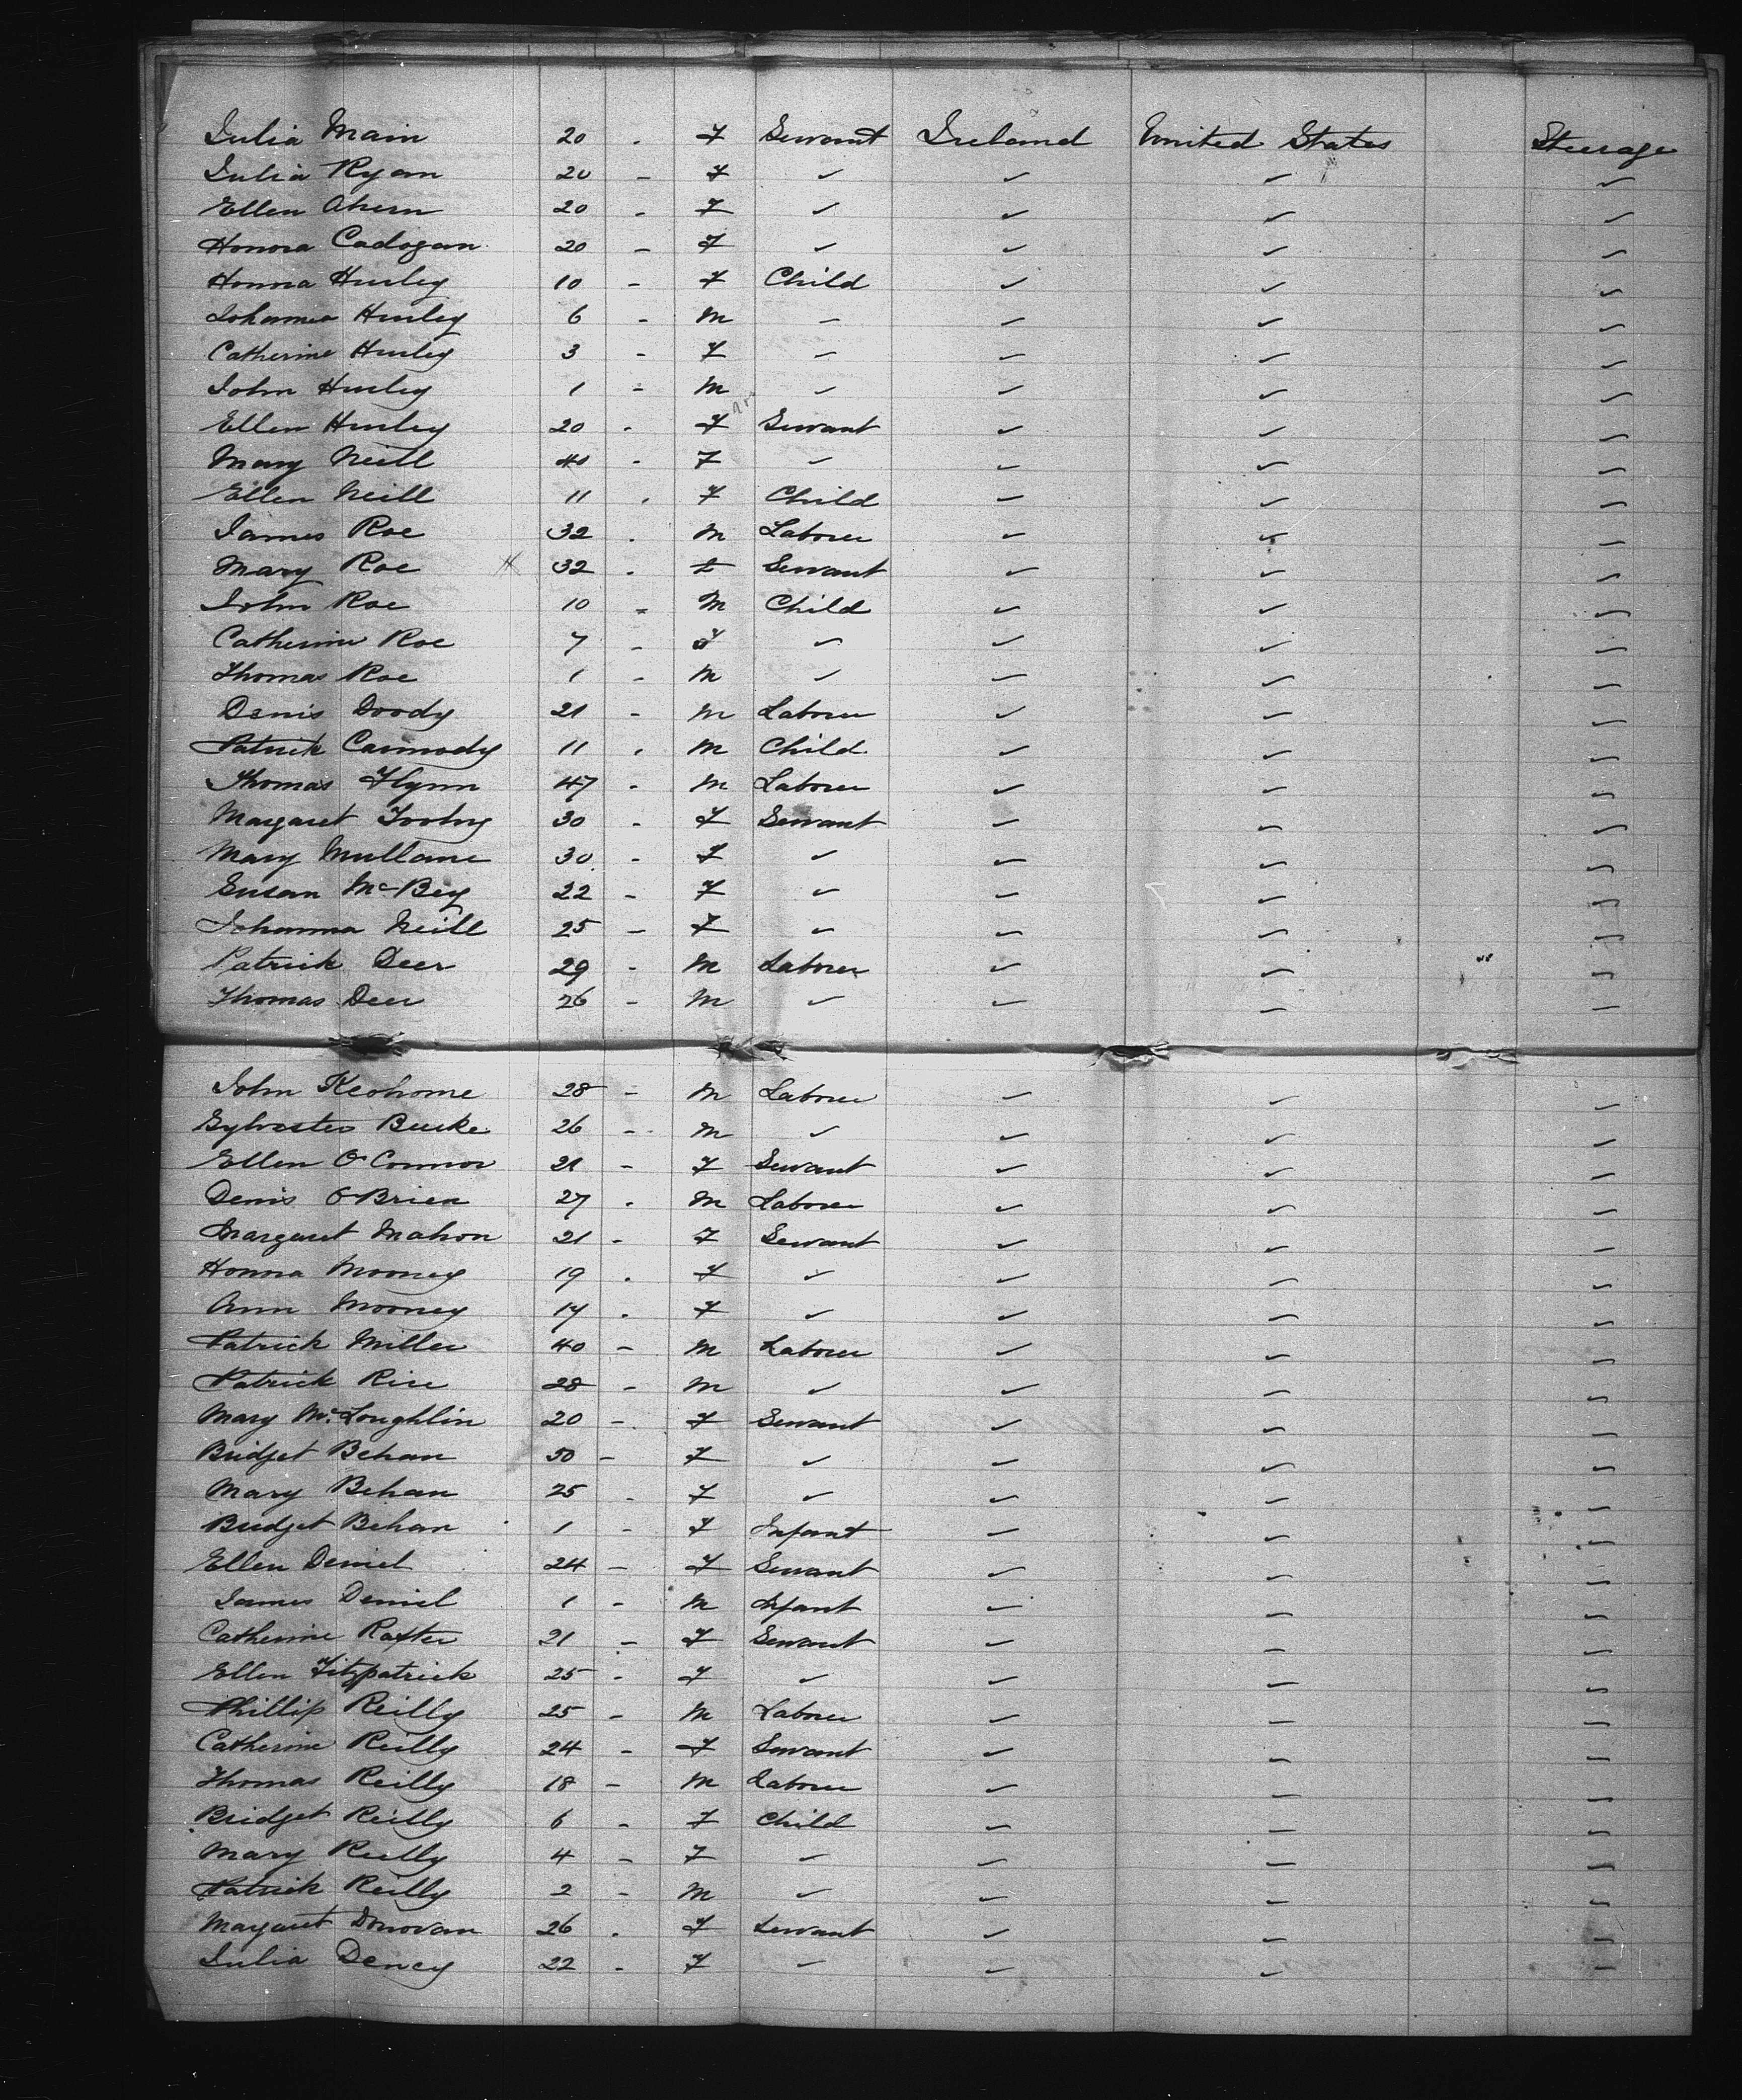 Julia Main 20 - F Servant Ireland United States Steerage
Julia Ryan 20 - F ✓ ✓ ✓ ✓
Ellen Ahern 20 - F ✓ ✓ ✓ ✓
Honora Cadogan 20 - F ✓ ✓ ✓ ✓
Honora Hurley 10 - F Child ✓ ✓ ✓
Johanna Hurley 6 - M ✓ ✓ ✓ ✓
Catherine Hurley 3 - F ✓ ✓ ✓ ✓
John Hurley 1 - M ✓ ✓ ✓ ✓
Ellen Hurley 20 - F Servant ✓ ✓ ✓
Mary Neill 40 - F ✓ ✓ ✓ ✓
Ellen Neill 11 - F Child ✓ ✓ ✓
James Roe 32 - M Laborer ✓ ✓ ✓
Mary Roe X 32 - F Servant ✓ ✓ ✓
John Roe 10 - M Child ✓ ✓ ✓
Catherine Roe 7 - F ✓ ✓ ✓ ✓
Thomas Roe 1 - M ✓ ✓ ✓ ✓
Denis Doody 21 - M Laborer ✓ ✓ ✓
Patrick Carmody 11 - M Child ✓ ✓ ✓
Thomas Flynn 47 - M Laborer ✓ ✓ ✓
Margaret 30 - F Servant ✓ ✓ ✓
Mary Mullane 30 - F ✓ ✓ ✓ ✓
Susan McBey 22 - F ✓ ✓ ✓ ✓
Johanna Neill 25 - F ✓ ✓ ✓ ✓
Patrick Deer 29 - M Laborer ✓ ✓ ✓
Thomas Deer 26 - M ✓ ✓ ✓ ✓
John Keohome 28 - M Laborer ✓ ✓ ✓
Sylvester Burke 26 - M ✓ ✓ ✓ ✓
Ellen O'Connor 21 - F Servant ✓ ✓ ✓
Denis O'Brien 27 - M Laborer ✓ ✓ ✓
Margaret Mahon 21 - F Servant ✓ ✓ ✓
Honora Mooney 19 - F ✓ ✓ ✓ ✓
Ann Mooney 17 - F ✓ ✓ ✓ ✓
Patrick Miller 40 - M Laborer ✓ ✓ ✓
Patrick Rice 28 - M ✓ ✓ ✓ ✓
Mary McLoughlin 20 - F Servant ✓ ✓ ✓
Bridget Behan 50 - F ✓ ✓ ✓ ✓
Mary Behan 25 - F ✓ ✓ ✓ ✓
Bridget Behan 1 - F Infant ✓ ✓ ✓
Ellen Deniel 24 - F Servant ✓ ✓ ✓
James Deniel 1 - M Infant ✓ ✓ ✓
Catherine Rafter 21 - F Servant ✓ ✓ ✓
Ellen Fitzpatrick 25 - F ✓ ✓ ✓ ✓
Phillip Reilly 25 - M Laborer ✓ ✓ ✓
Catherine Reilly 24 - F Servant ✓ ✓ ✓
Thomas Reilly 18 - M Laborer ✓ ✓ ✓
Bridget Reilly 6 - F Child ✓ ✓ ✓
Mary Reilly 4 - F ✓ ✓ ✓ ✓
Patrick Reilly 2 - M ✓ ✓ ✓ ✓
Margaret Donovan 26 - F Servant ✓ ✓ ✓
Julia Dency 22 - F ✓ ✓ ✓ ✓